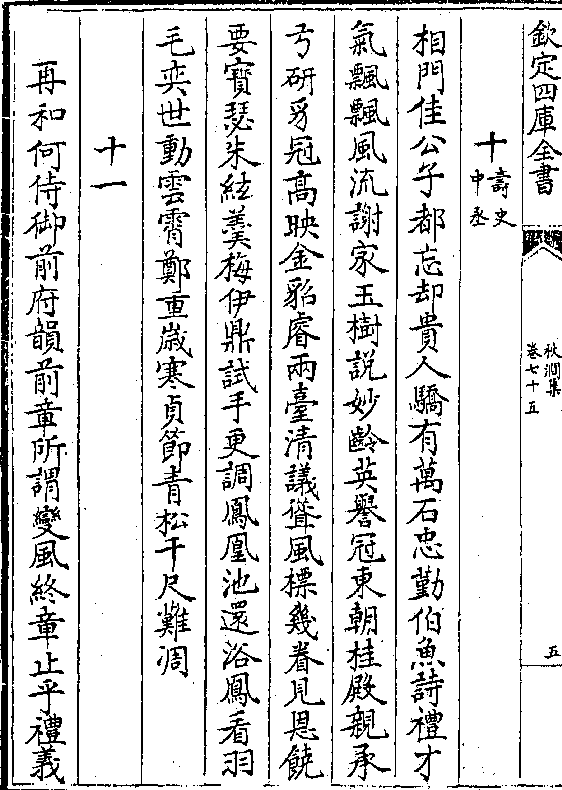 欽定四庫全書
秋澗集
卷七十五
五
十
壽史
中丞
相門佳公子都忘却貴人驕有萬石忠勤伯魚詩禮才
氣飄飄風流謝家玉樹説妙齡英譽冠東朝桂殿親承
弓研豸冠高映金貂睿兩臺清議聳風標幾眷見恩饒
要寶瑟朱絃羮梅伊鼎試手更調鳳凰池還浴鳳看羽
毛奕世動雲霄鄭重歲寒貞節青松千尺難凋
十一
再和何侍御前府韻前章所謂變風終章止乎禮義